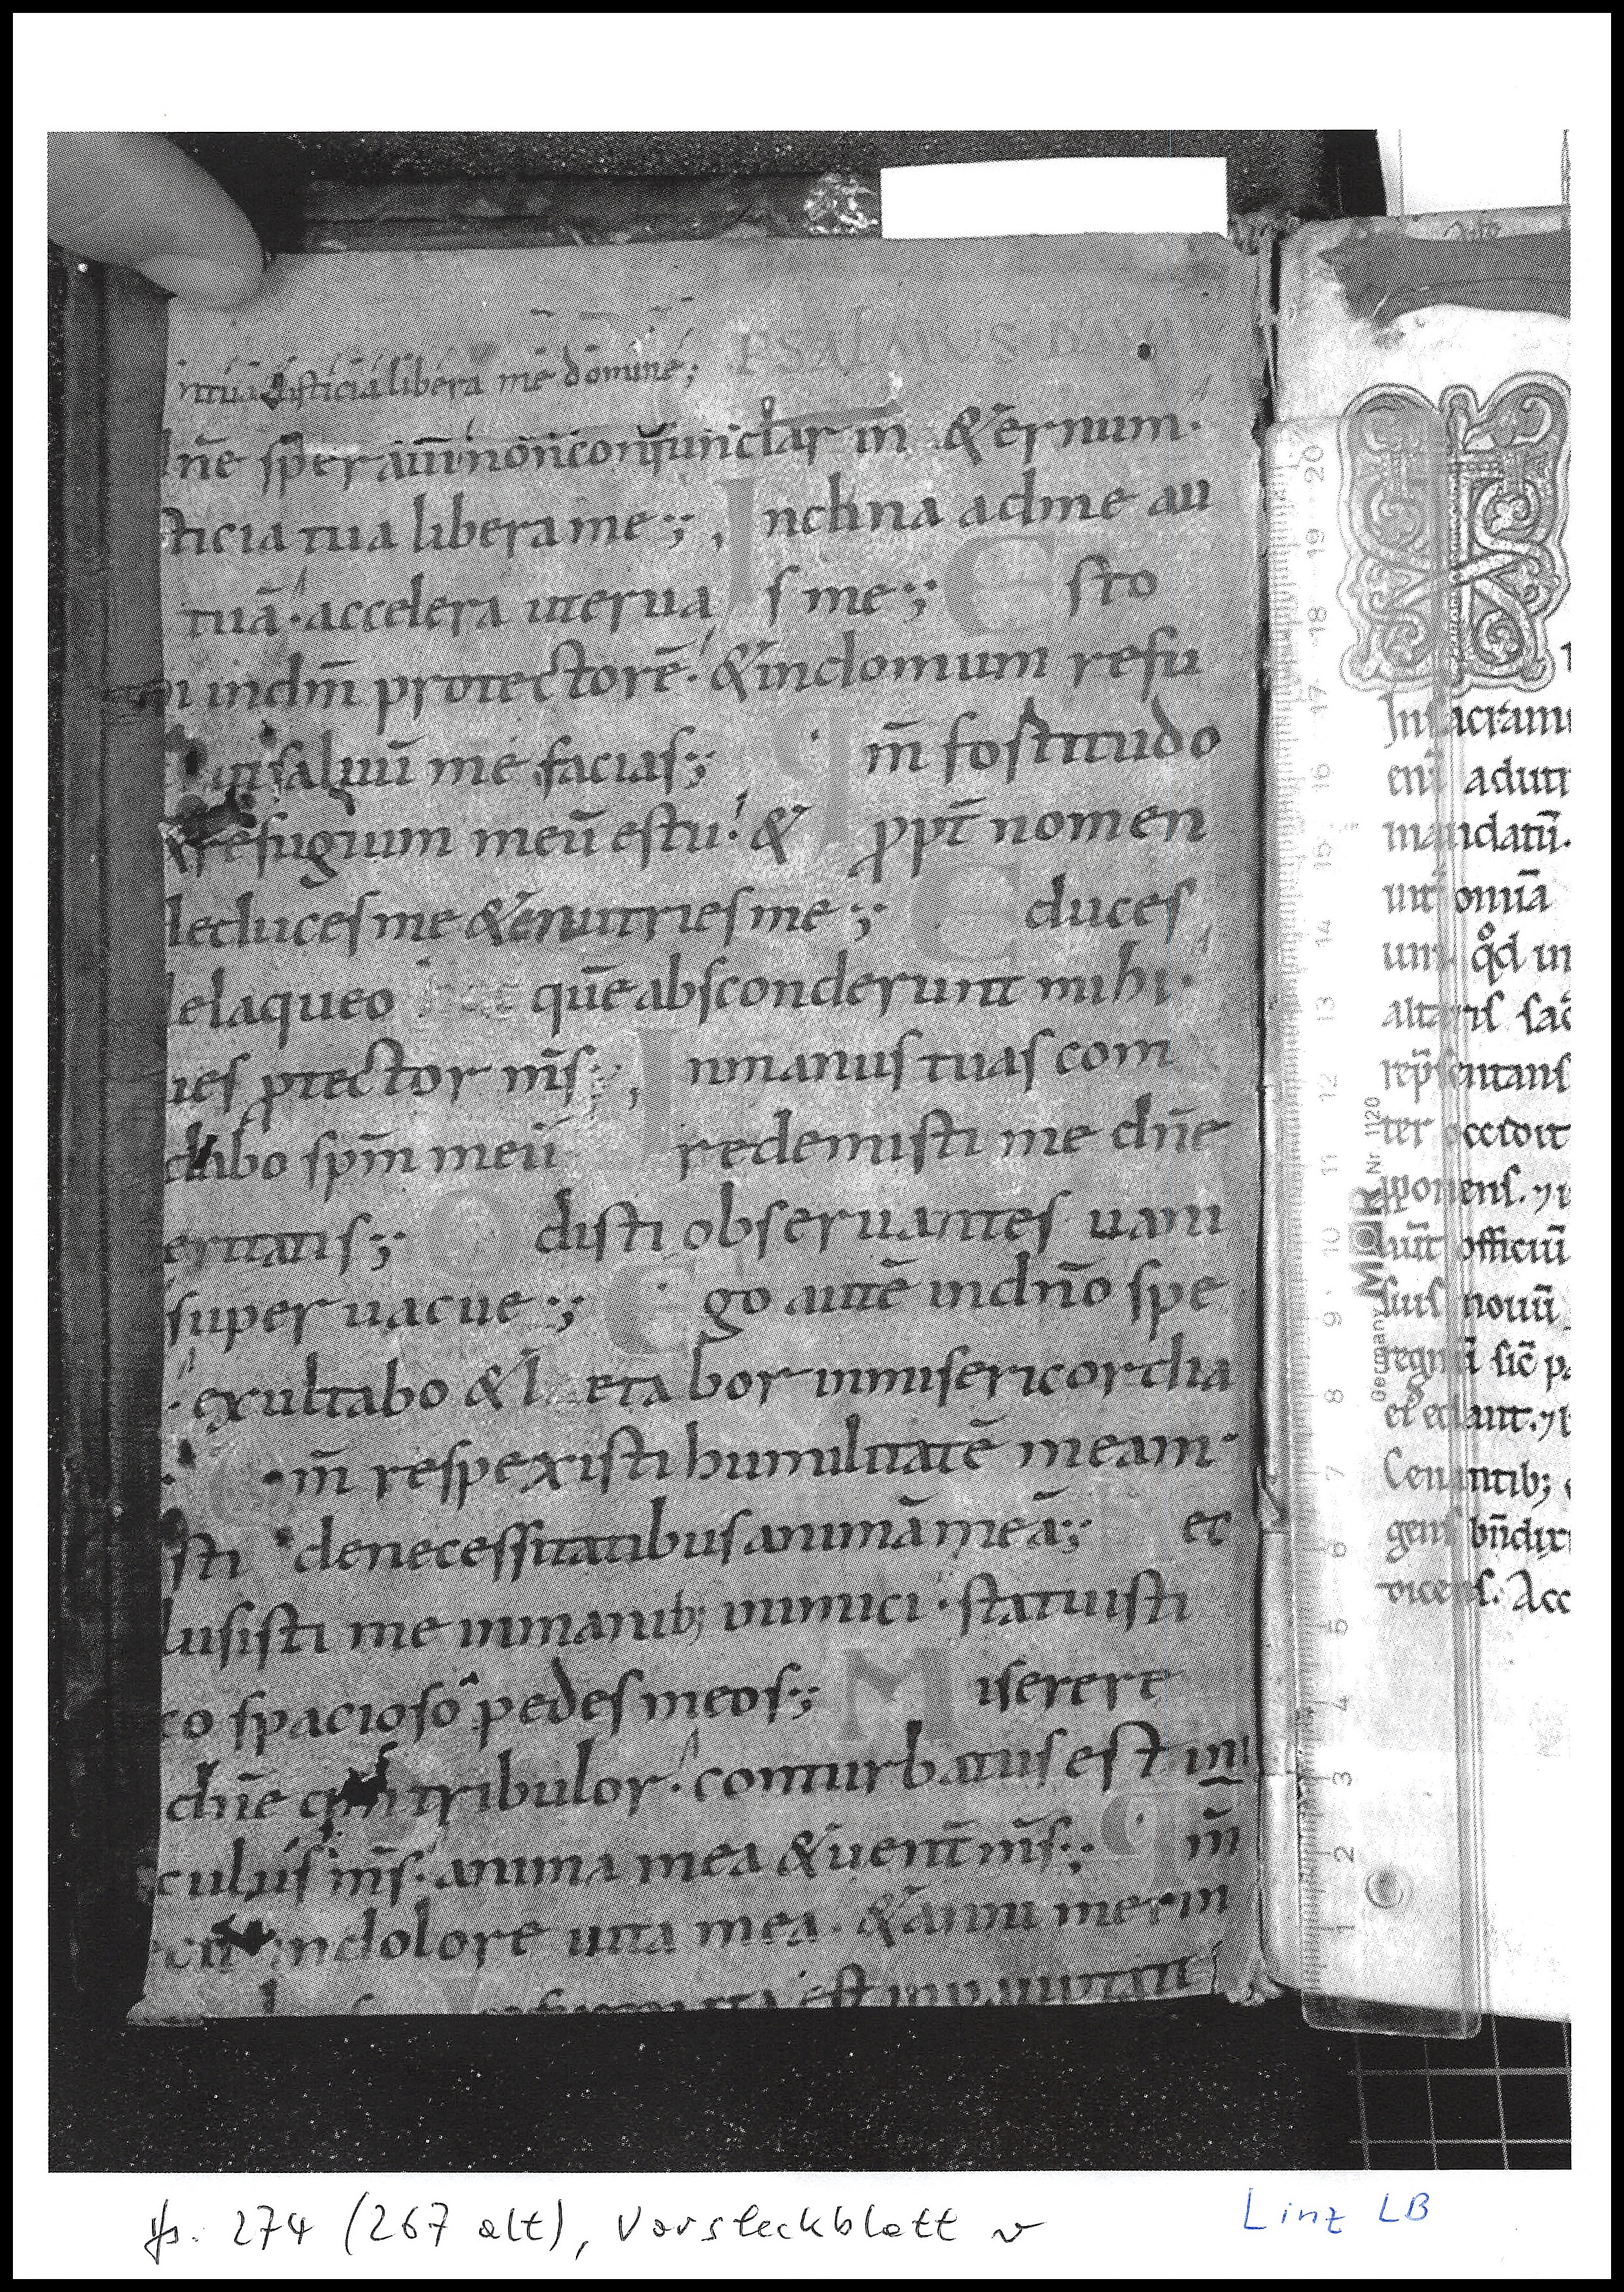 intua iusticia libera me domine;
PSALMUS DA
dn̄e sperauı̄ non confundar in &ernum·
sticia tua libera me;; Inclina adme au
tuā· accelera uterua s me;; Esto
indm̄ protectorē· &indomum refu
salūū me facias;; q m̄ fostitudo
refugium meū estu· & ꝓpt̄ nomen
deduces me &enutries me;; Educes
delaqueo quē absconderunt mihi·
ues ꝓtector m̄s;; Inmanus tuas com
dabo sp̄m meū redemisti me dn̄e
eritatis;; Odisti obseruantes uani
super uacue;; Ego autē indn̄o spe
· exultabo &l etabor inmisericordia
Q m̄ respexisti humilitatē meam·
sti denecessitatibus animā meā;; ec
lusisti me inmanib; inimici· statuisti
co spacioso pedes meos;; Miserere
dn̄e qm̄ tribulor· conturbatus est in
culus m̄s· anima mea &uent̄ m̄s;; q m̄
indolore uita mea· &anni mei in
est inpaup̄tate
Insacram
enī aduti
mandatū·
unt omīa
um qd̊ in
altaris sac̄
rep̄sentans
ter occidit
ponens. ⁊
aūt officiū
suis nouū
regnū sic̄ p
et edant. ⁊
Cenantib;
gens bn̄dix
dicens. Acc
20
19
18
17
16
15
14
13
12
11
10
9
8
7
6
5
4
3
2
1
Germany MOR Nr. 1120
Hs. 274 (267 alt), Vorsteckblatt v
Linz LB